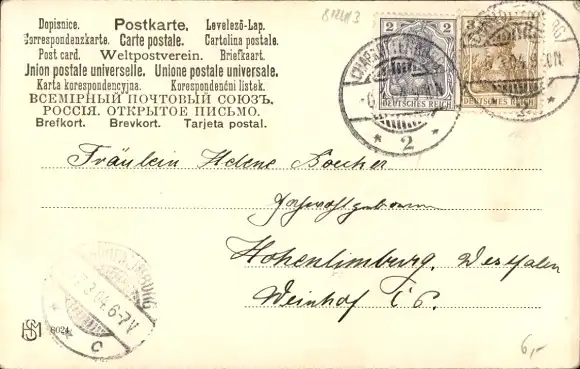 Dopisnice. Postkarte. Levelező-Lap.
Correspondenzkarte. Carte postale. Cartolina postale.
Post card. Weltpostverein. Briefkaart.
Union postale universelle. Unione postale universale.
Karta korespondencyjna. Korespondenční lístek.
ВСЕМІРНЫЙ ПОЧТОВЫЙ СОЮЗЪ.
РОССІЯ. ОТКРЫТОЕ ПИСЬМО.
Brefkort. Brevkort. Tarjeta postal.
2 2
DEUTSCHES REICH
3
DEUTSCHES REICH
* 2 *
Fräulein Helene
Hohenlimburg, Westfalen
Weinhof
.3.04.6-7V
* c
8024
6,-